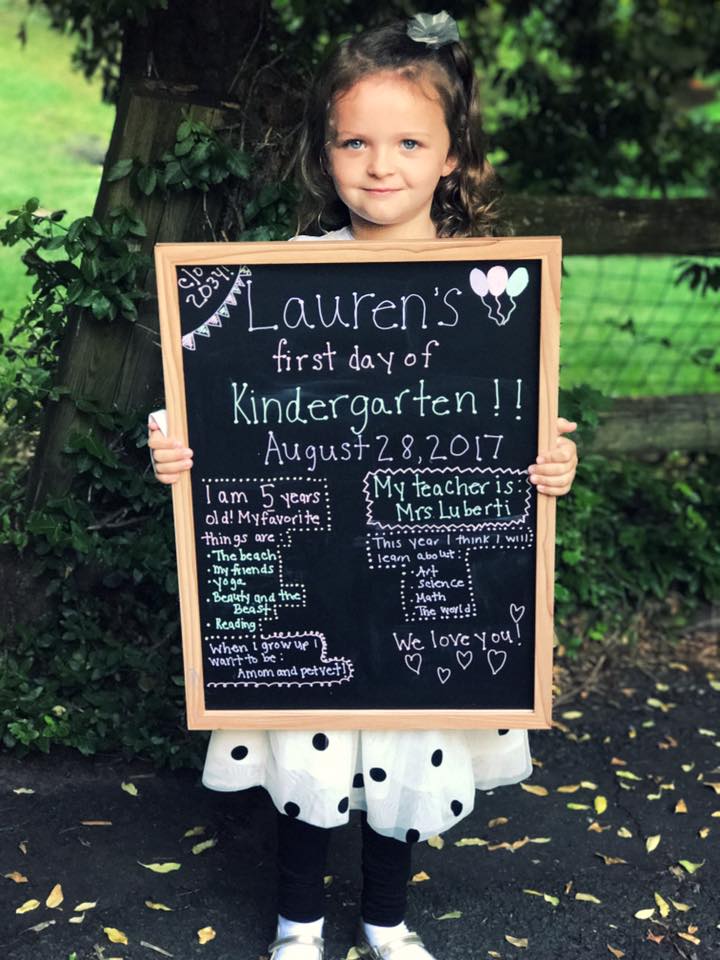 c/o
2034!
Lauren's
first day of
Kindergarten!!
August 28, 2017
I am 5 years
old! My favorite
things are:
• The beach
• my friends
• yoga
• Beauty and the
Beast
• Reading
When I grow up I
want to be:
A mom and pet vet!
My teacher is:
Mrs Luberti
This year I think I will
learn about:
• Art
• science
• Math
• The world
We love you!